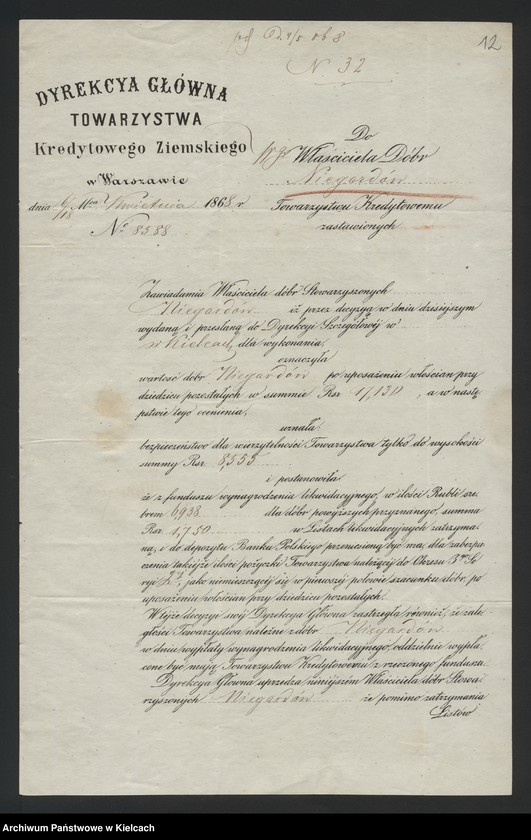 12
N. 32
DYREKCYA GŁÓWNA
TOWARZYSTWA
Kredytowego Ziemskiego
w Warszawie
dnia 6/18 Mca Kwietnia 1868 r
No 8588
Do
Właściciela Dóbr
Niegardów
Towarzystwu Kredytowemu
zastawionych
Zawiadamia Właściciela dóbr Stowarzyszonych
Niegardów iż przez decyzyą w dniu dzisiejszym
wydaną i przesłaną do Dyrekcyi Szczegółowej w
w Kielcach, dla wykonania,
oznaczyła
wartość dóbr Niegardów po uposażeniu włościan przy
dziedzicu pozostałych w summie Rsr 17,130, a w nastę
pstwie tego ocenienia,
uznała
bezpieczeństwo dla wierzytelności Towarzystwa tylko do wysokości
summy Rsr 8,555
i postanowiła
że z funduszu wynagrodzenia likwidacyjnego, w ilości Rubli sre
brem 6938 dla dóbr powyższych przyznanego, summa
Rsr 1,750 w Listach likwidacyjnych zatrzyma
ną, i do depozytu Banku Polskiego przeniesioną być ma, dla zabezpie
czenia takiejże ilości pożyczki Towarzystwa należącej do Okresu 3go Se
ryi 2ej, jako niemieszczącej się w pierwszej połowie szacunku dóbr, po
uposażeniu włościan przy dziedzicu pozostałych.
W tejże decyzyi swej Dyrekcya Główna zastrzegła również, iż zale
głości Towarzystwa należne z dóbr Niegardów
w dniu wypłaty wynagrodzenia likwidacyjnego, oddzielnie wypła
cone być mają Towarzystwu Kredytowemu z rzeczonego funduszu.
Dyrekcya Główna uprzedza niniejszem Właściciela dóbr Stowa
rzyszonych Niegardów że pomimo zatrzymania
Listów
Archiwum Państwowe w Kielcach